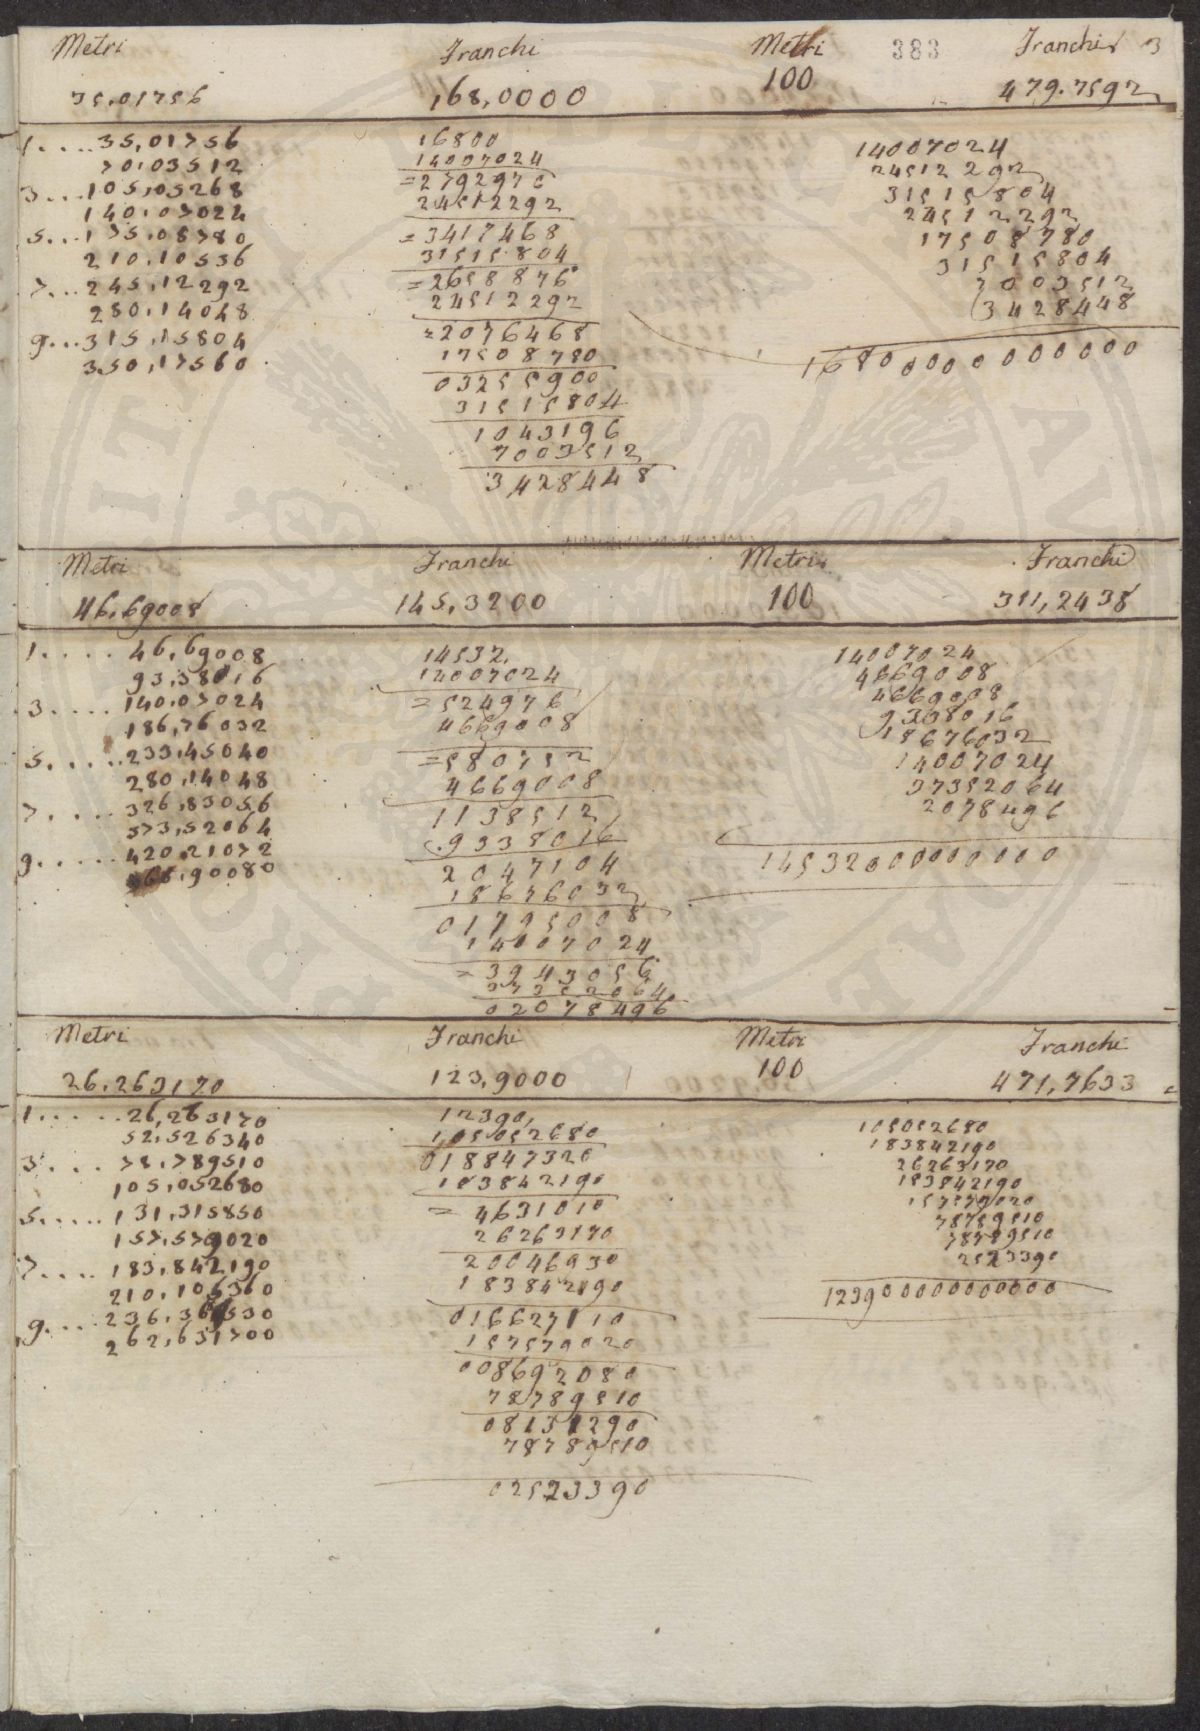 Metri Franchi Metri 383 Franchi 3
35,01756 168,0000 100 479.7592
1....35,01756
70,03512
3...105,05268
140,07024
5...175,08780
210,10536
7...245,12292
280,14048
9...315,15804
350,17560
16800
14007024
=2792976
24512292
=3417468
31515804
=2658876
24512292
=2076468
17508780
03255900
31515804
1043196
7003512
3428448
14007024
24512292
31515804
24512292
17508780
31515804
7003512
3428448
1680000000000
Metri Franchi Metri Franchi
46,69008 145,3200 100 311,2438
1.....46,69008
93,38016
3.....140,07024
186,76032
5.....233,45040
280,14048
7....326,83056
373,52064
9.....420,21072
466,90080
14532,
14007024
=524976
4669008
=580752
4669008
1138512
9338016
2047104
18676032
01795008
14007024
=3943056
37352064
02078496
14007024
4669008
4669008
9338016
18676032
14007024
37352064
2078496
1453200000000
Metri Franchi Metri Franchi
26,263170 123,9000 100 471,7633 =
1.....26,263170
52,526340
3....78,789510
105,052680
5.....131,315850
157,579020
7....183,842190
210,105360
9....236,368530
262,631700
12390,
105052680
018847320
183842190
=4631010
26263170
20046930
183842190
016627110
157579020
008692080
78789510
08131290
78789510
02523390
105052680
183842190
26263170
183842190
157579020
78789510
78789510
2523390
123900000000000